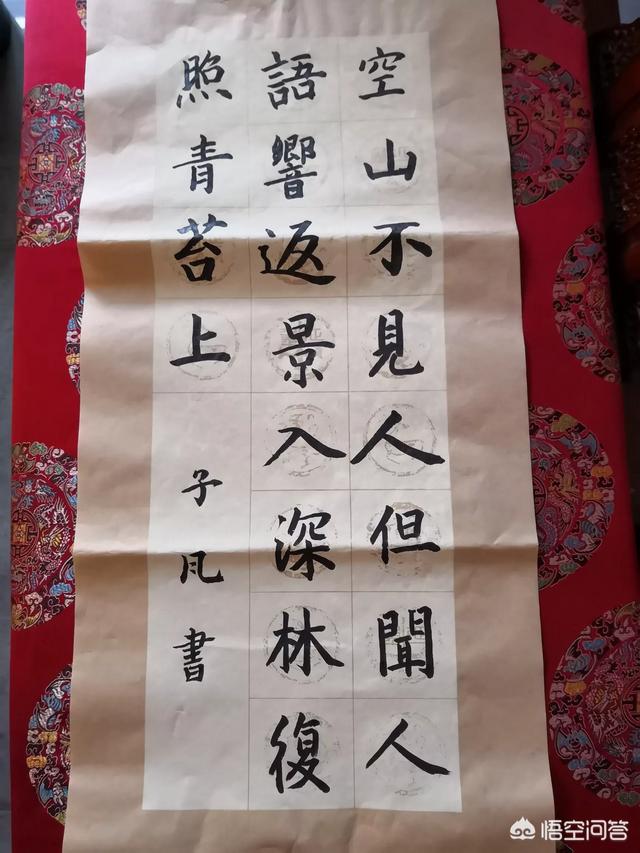 空山不見人但聞人
語響返景入深林復
照青苔上
子凡書
悟空问答